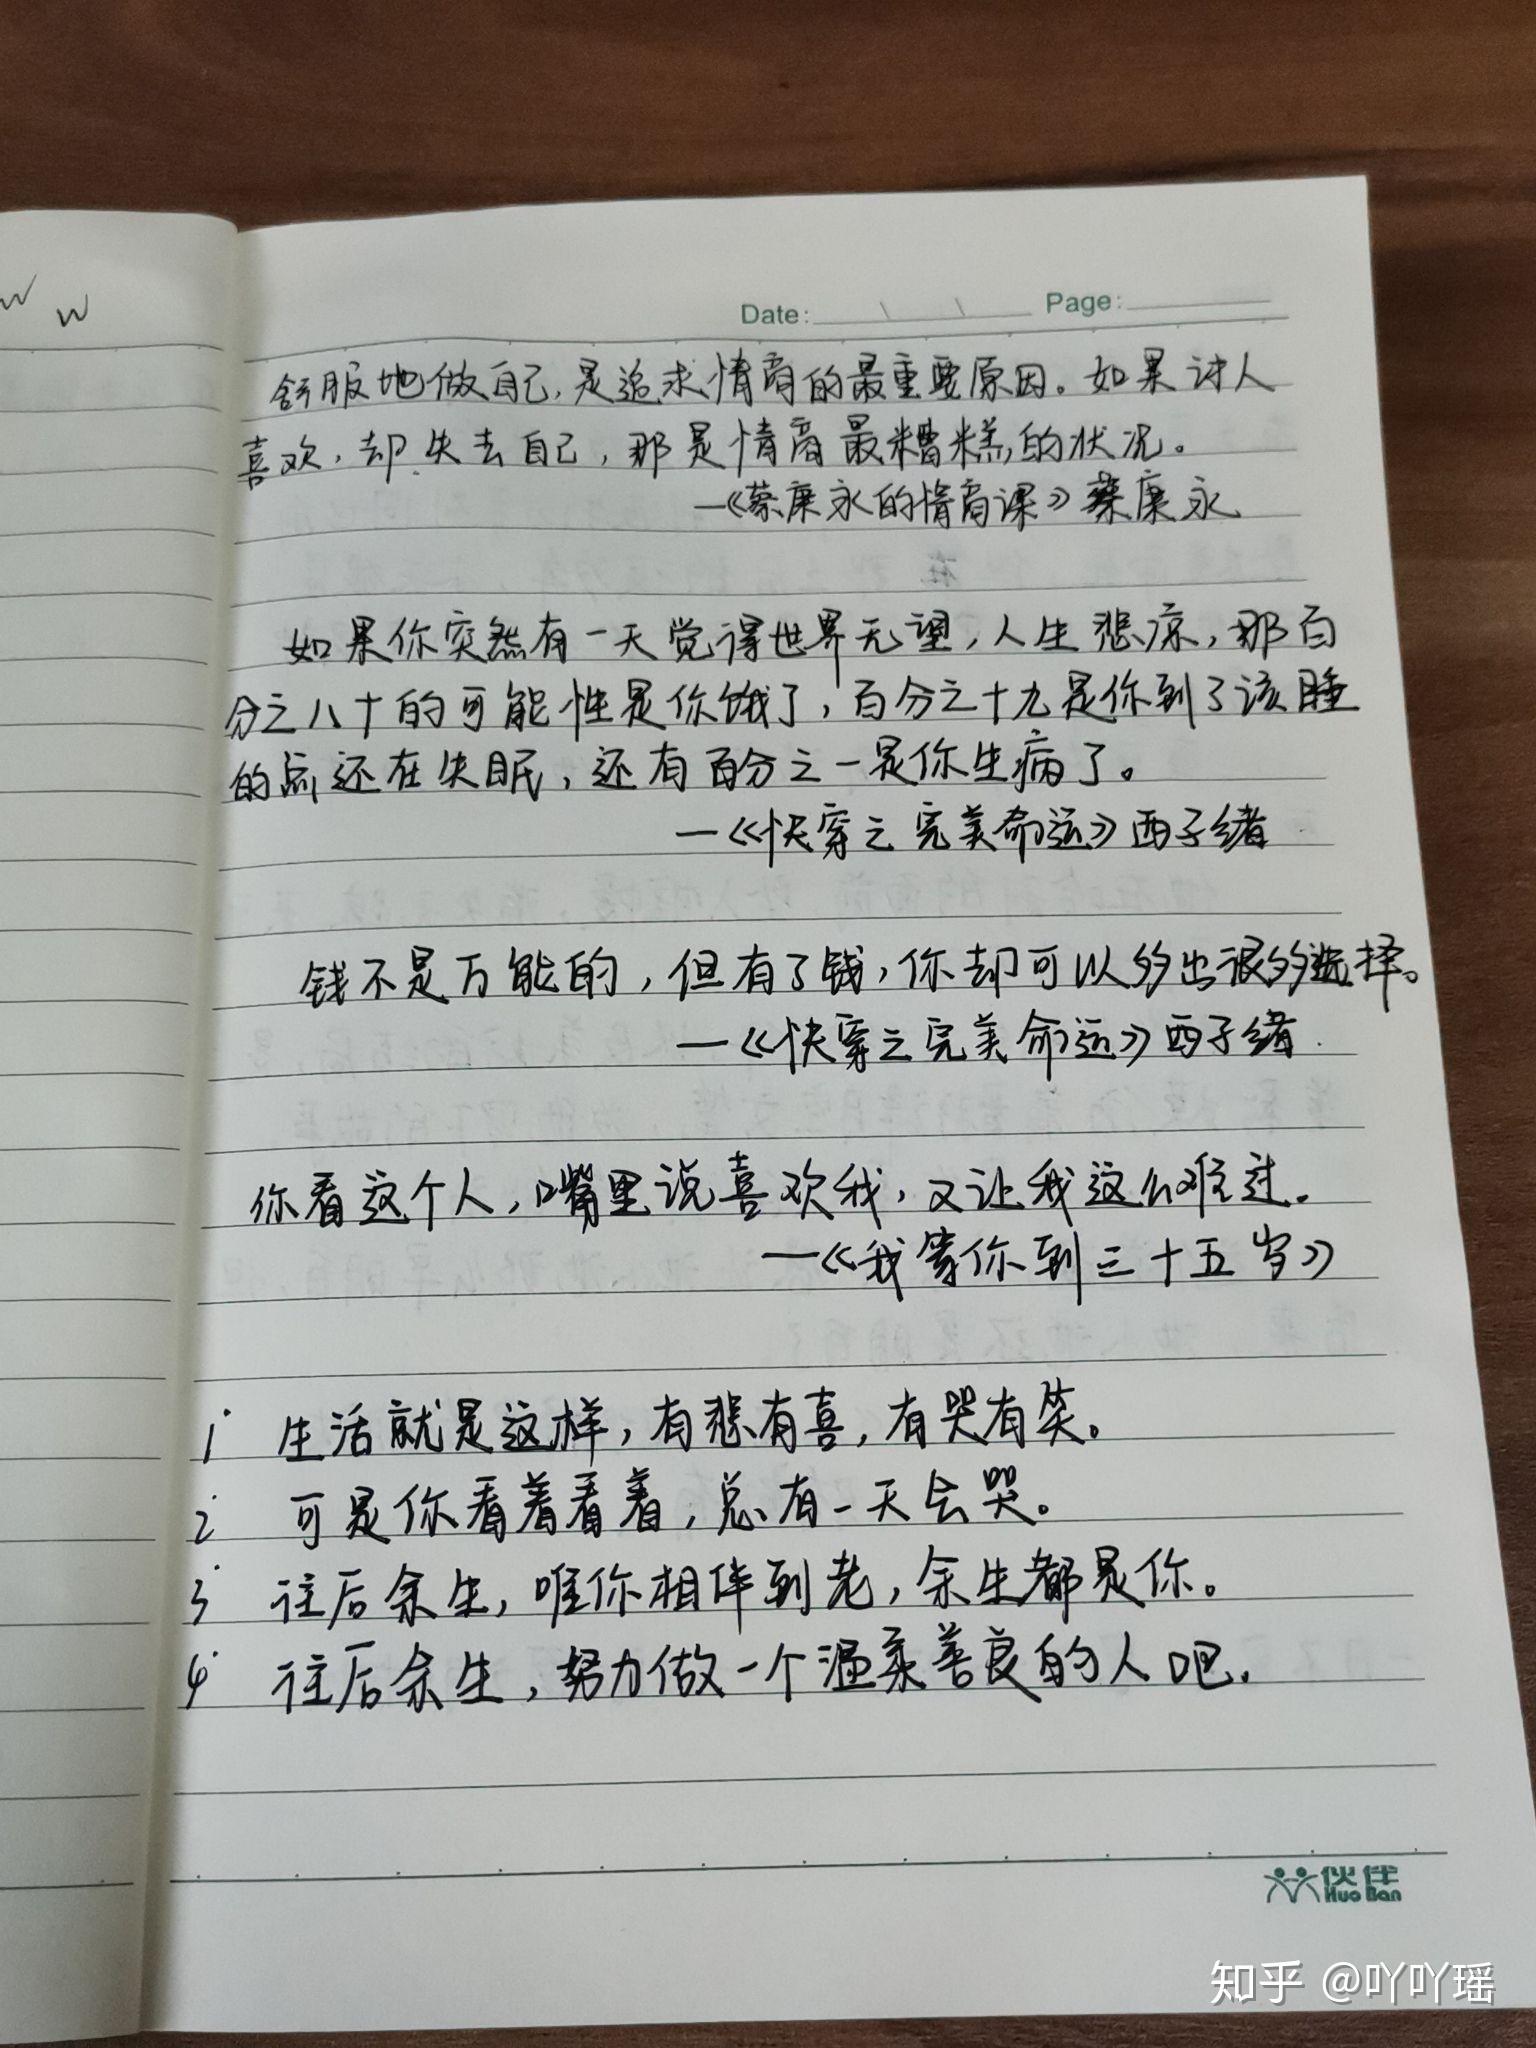 W W
Date: \ \ Page:
舒服地做自己,是追求情商的最重要原因。如果讨人
喜欢,却失去自己,那是情商最糟糕的状况。
—《蔡康永的情商课》蔡康永
如果你突然有一天觉得世界无望,人生悲凉,那百
分之八十的可能性是你饿了,百分之十九是你到了该睡
的点还在失眠,还有百分之一是你生病了。
—《快穿之完美命运》西子绪
钱不是万能的,但有了钱,你却可以多出很多选择。
—《快穿之完美命运》西子绪
你看这个人,嘴里说喜欢我,又让我这么难过。
—《我等你到三十五岁》
1 生活就是这样,有悲有喜,有哭有笑。
2 可是你看着看着,总有一天会哭。
3 往后余生,唯你相伴到老,余生都是你。
4 往后余生,努力做一个温柔善良的人吧.
伙伴
Huo Ban
知乎 @吖吖瑶